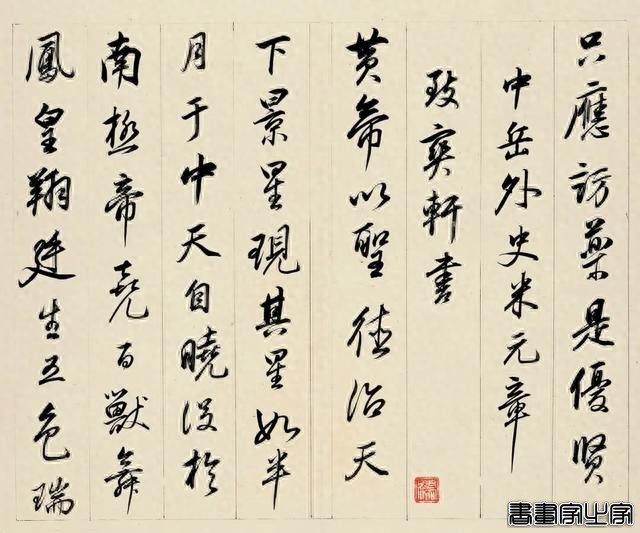 只應訪藥是優賢
中岳外史米元章
致爽軒書
黄帝以聖德治天
下景星現其星如半
月于中天自曉没於
南極帝堯百獸舞
鳳皇翔廷生五色瑞
書畫家之家